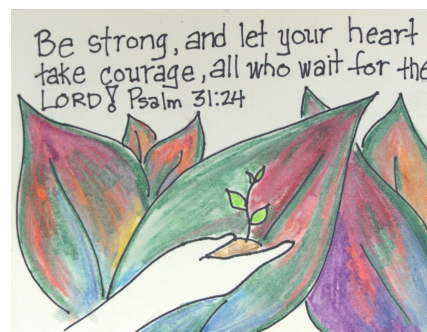 Be strong, and let your heart
take courage, all who wait for the
LORD! Psalm 31:24